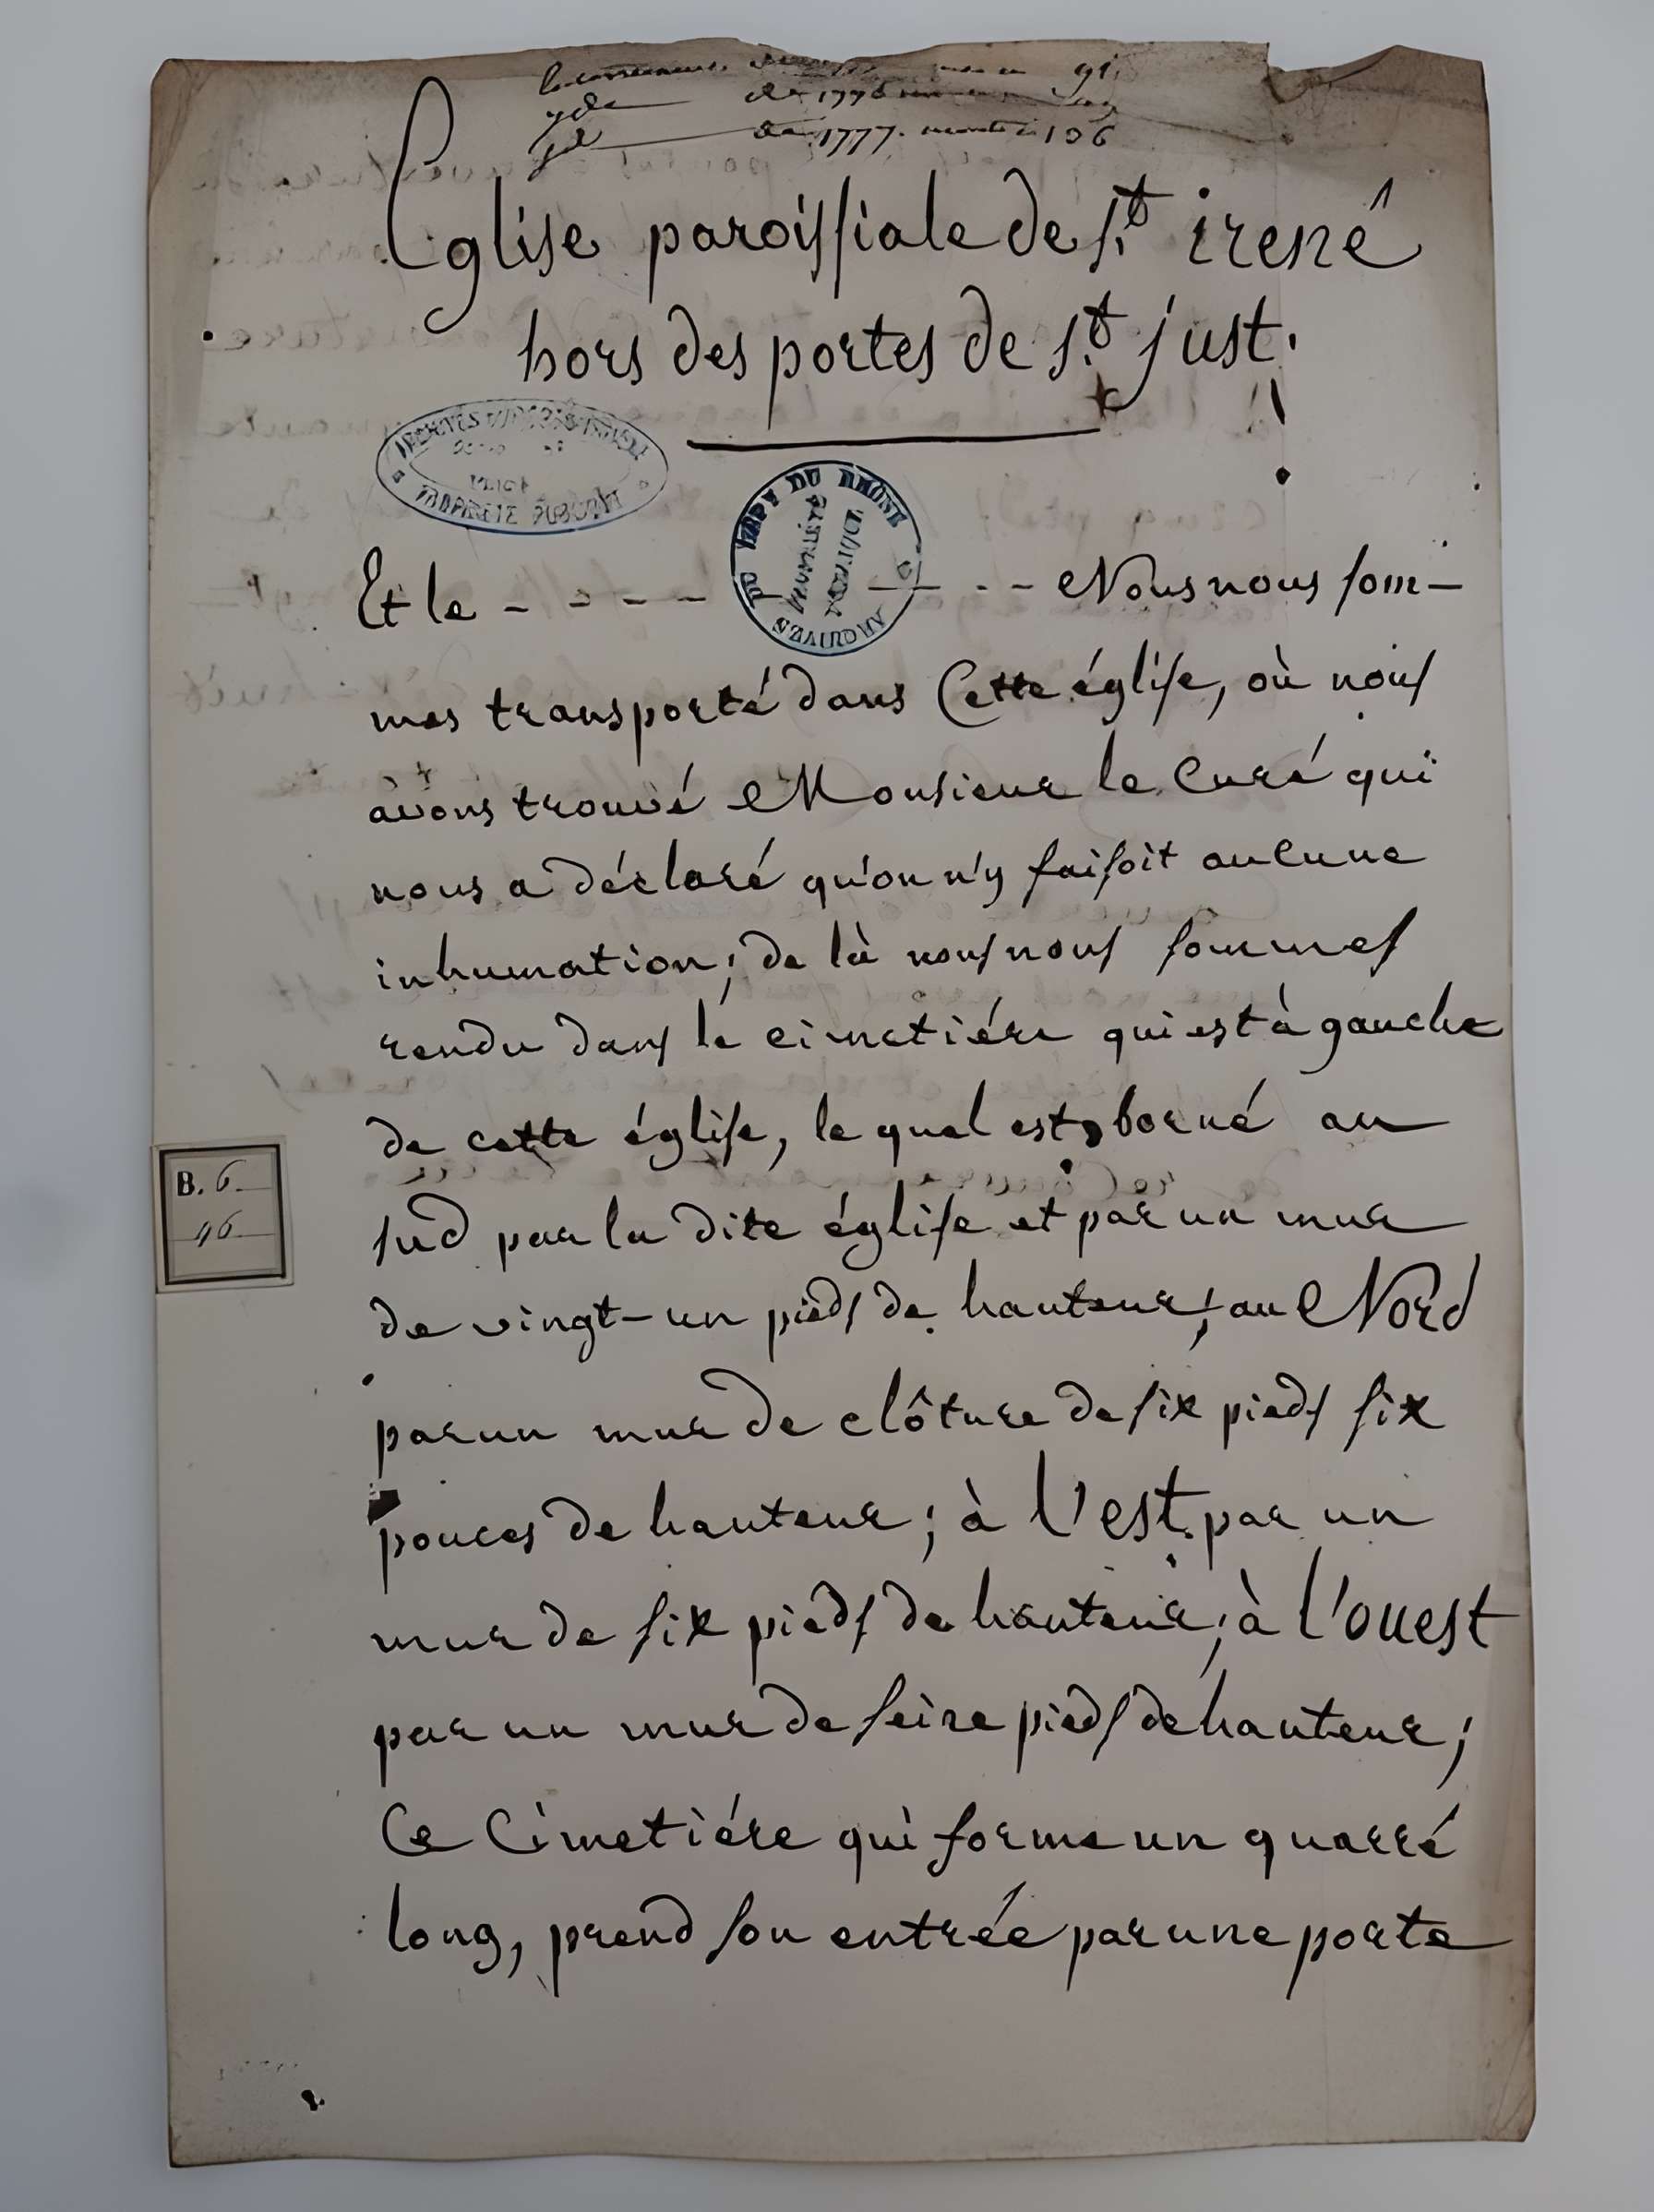 de 1776
de 1777. monte à 106
Eglise paroissiale de St. irené
hors des portes de St. just.
DU DEPT DU RHÔNE
ARCHIVES
PROPRIETE PUBLIQUE
Et le - - - - - - - Nous nous som-
mes transporté dans Cette église, où nous
avons trouvé Monsieur le Curé qui
nous a déclaré qu'on n'y faisoit aucune
inhumation; de là nous nous sommes
rendu dans le cimetiére qui est à gauche
de cette église, le quel est borné au
sud par la dite église et par un mur
de vingt-un pieds de hauteur; au Nord
par un mur de clôture de six pieds six
pouces de hauteur; à l'est par un
mur de six pieds de hauteur; à l'ouest
par un mur de seize pieds de hauteur;
Ce Cimetiére qui forme un quarré
long, prend son entrée par une porte
B. 6.
46